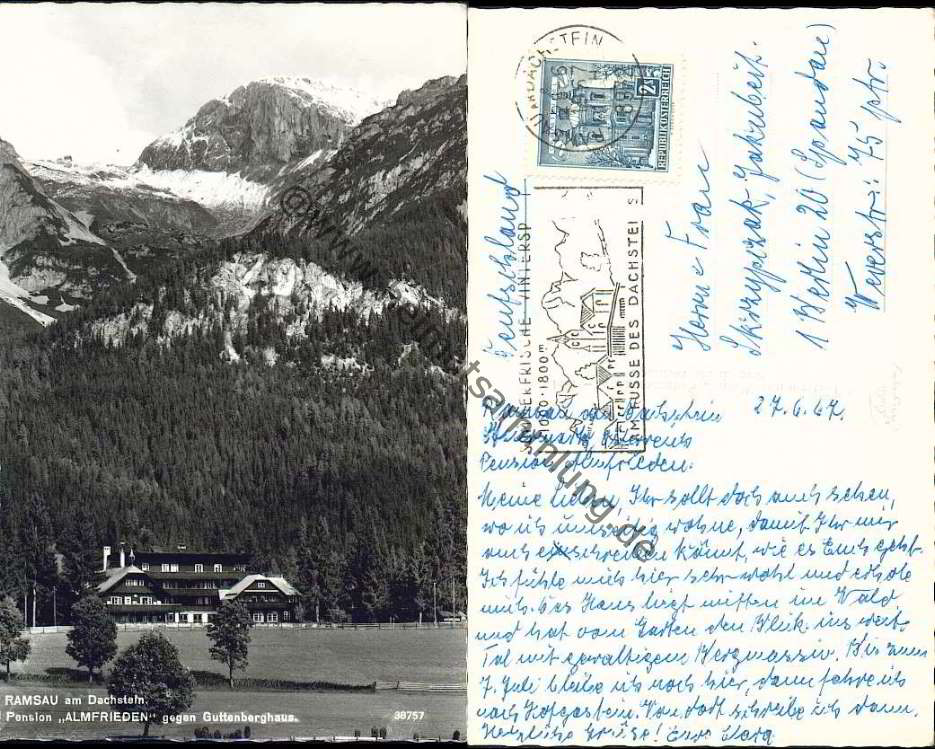 RAMSAU am Dachstein
Pension „ALMFRIEDEN" gegen Guttenberghaus.
38757
©www.
tsammlung.de
DACHSTEIN
2S
REPUBLIK ÖSTERREICH
SOMMERFRISCHE WINTERSP
1000-1800m
AM FUSSE DES DACHSTEI S
Deutschland
Herrn u Frau
Skrzypczak, Jakubeit.
1 Berlin 20 (Spandau)
Weverstr. 75 ptr.
Ramsau am Dachstein 27.6.67.
Steiermark
Pension Almfrieden.
Meine lieben, Ihr sollt doch auch sehen,
wo ich wohne, damit Ihr mir
auch schreiben könnt, wie es Euch geht.
Ich fühle mich hier sehr wohl und erhole
mich. Das Haus liegt mitten im Wald
und hat vom Garten den Blick ins weite
Tal mit gewaltigem Bergmassiv. Bis zum
7. Juli bleibe ich noch hier, dann fahre ich
nach Hofgastein. Von dort schreibe ich dann.
Herzliche Grüße! Eure